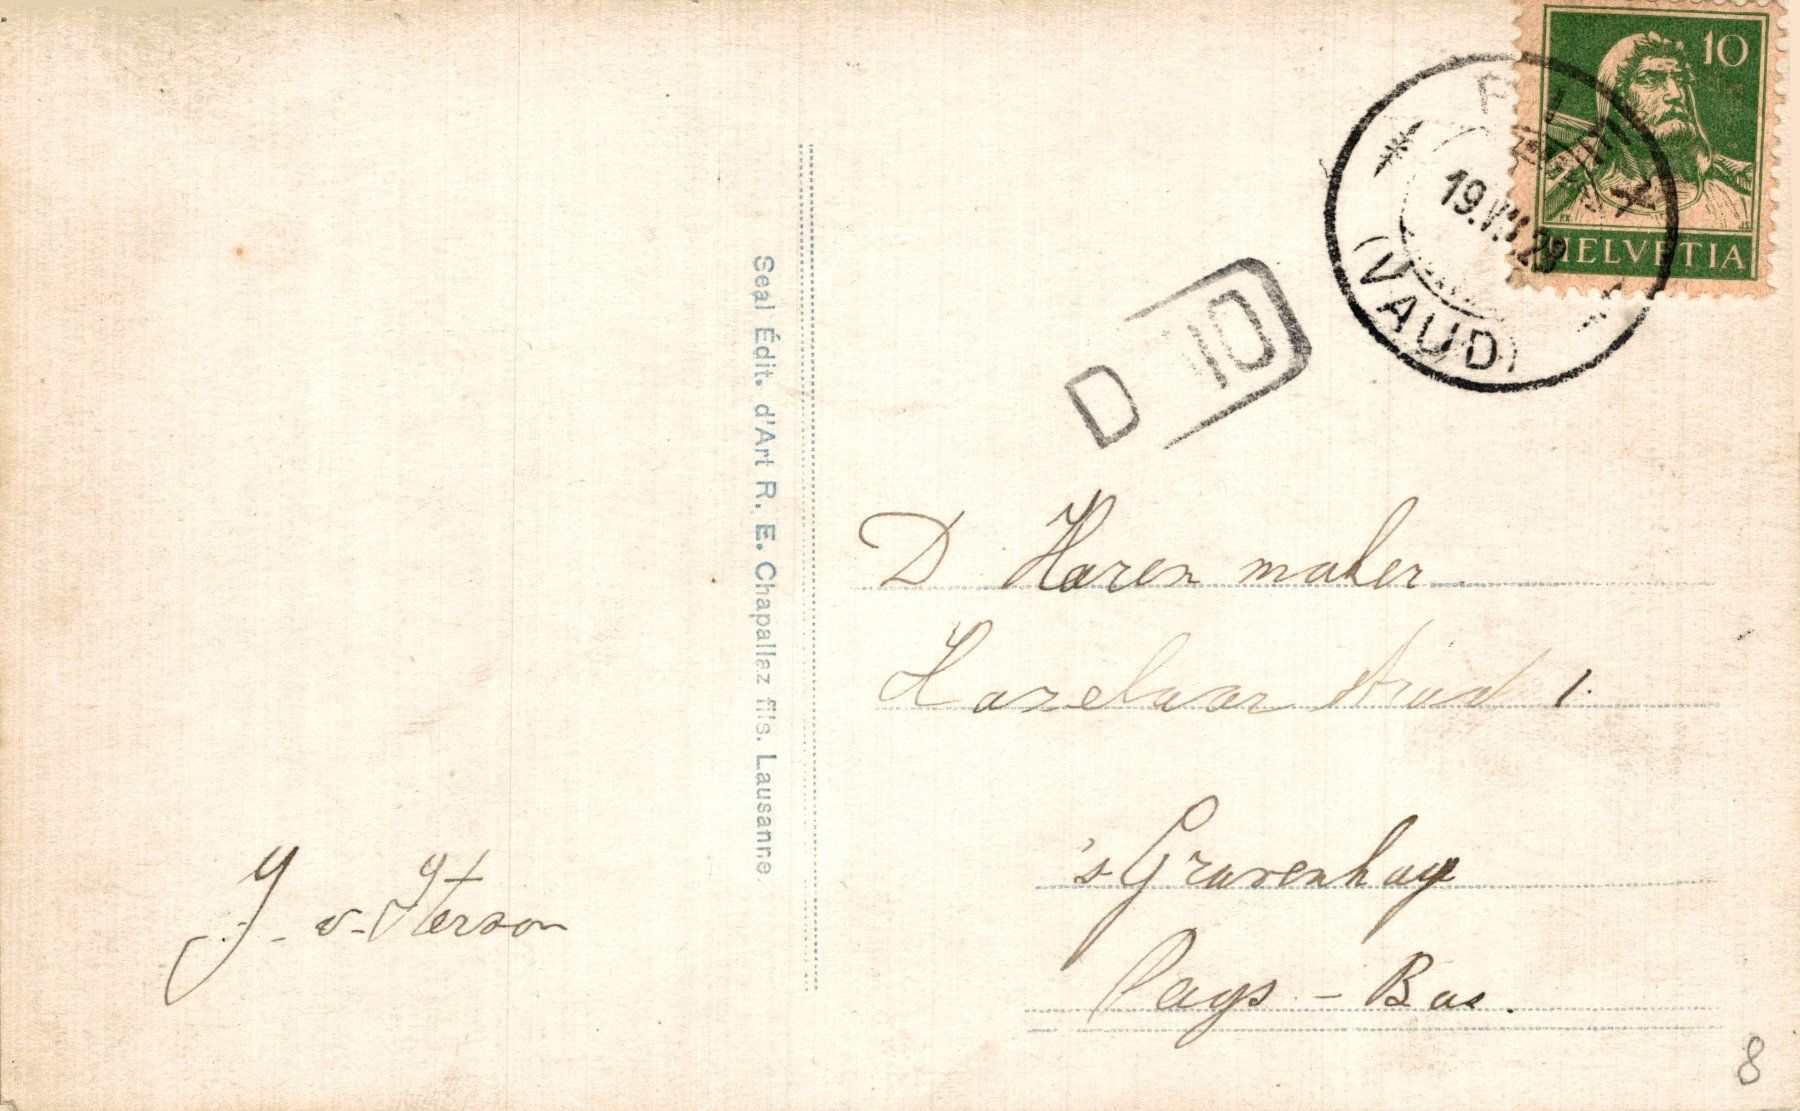 10
HELVETIA
19.VII.23
(VAUD)
D 10
Seal Édit. d'Art R. E. Chapallaz fils. Lausanne.
D Haren maker
Hazelaar straat 1.
's Gravenhage
Pays - Bas.
J. v. Iterson
8